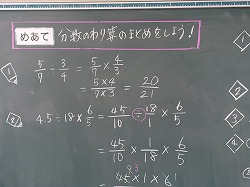 めあて 分数のわり算のまとめをしよう!
1 5/7 ÷ 3/4 = 5/7 × 4/3
= 5×4/7×3 = 20/21
2 4.5÷18×6/5 = 45/10 ÷ 18/1 × 6/5
= 45/10 × 1/18 × 6/5
= 45×1×6